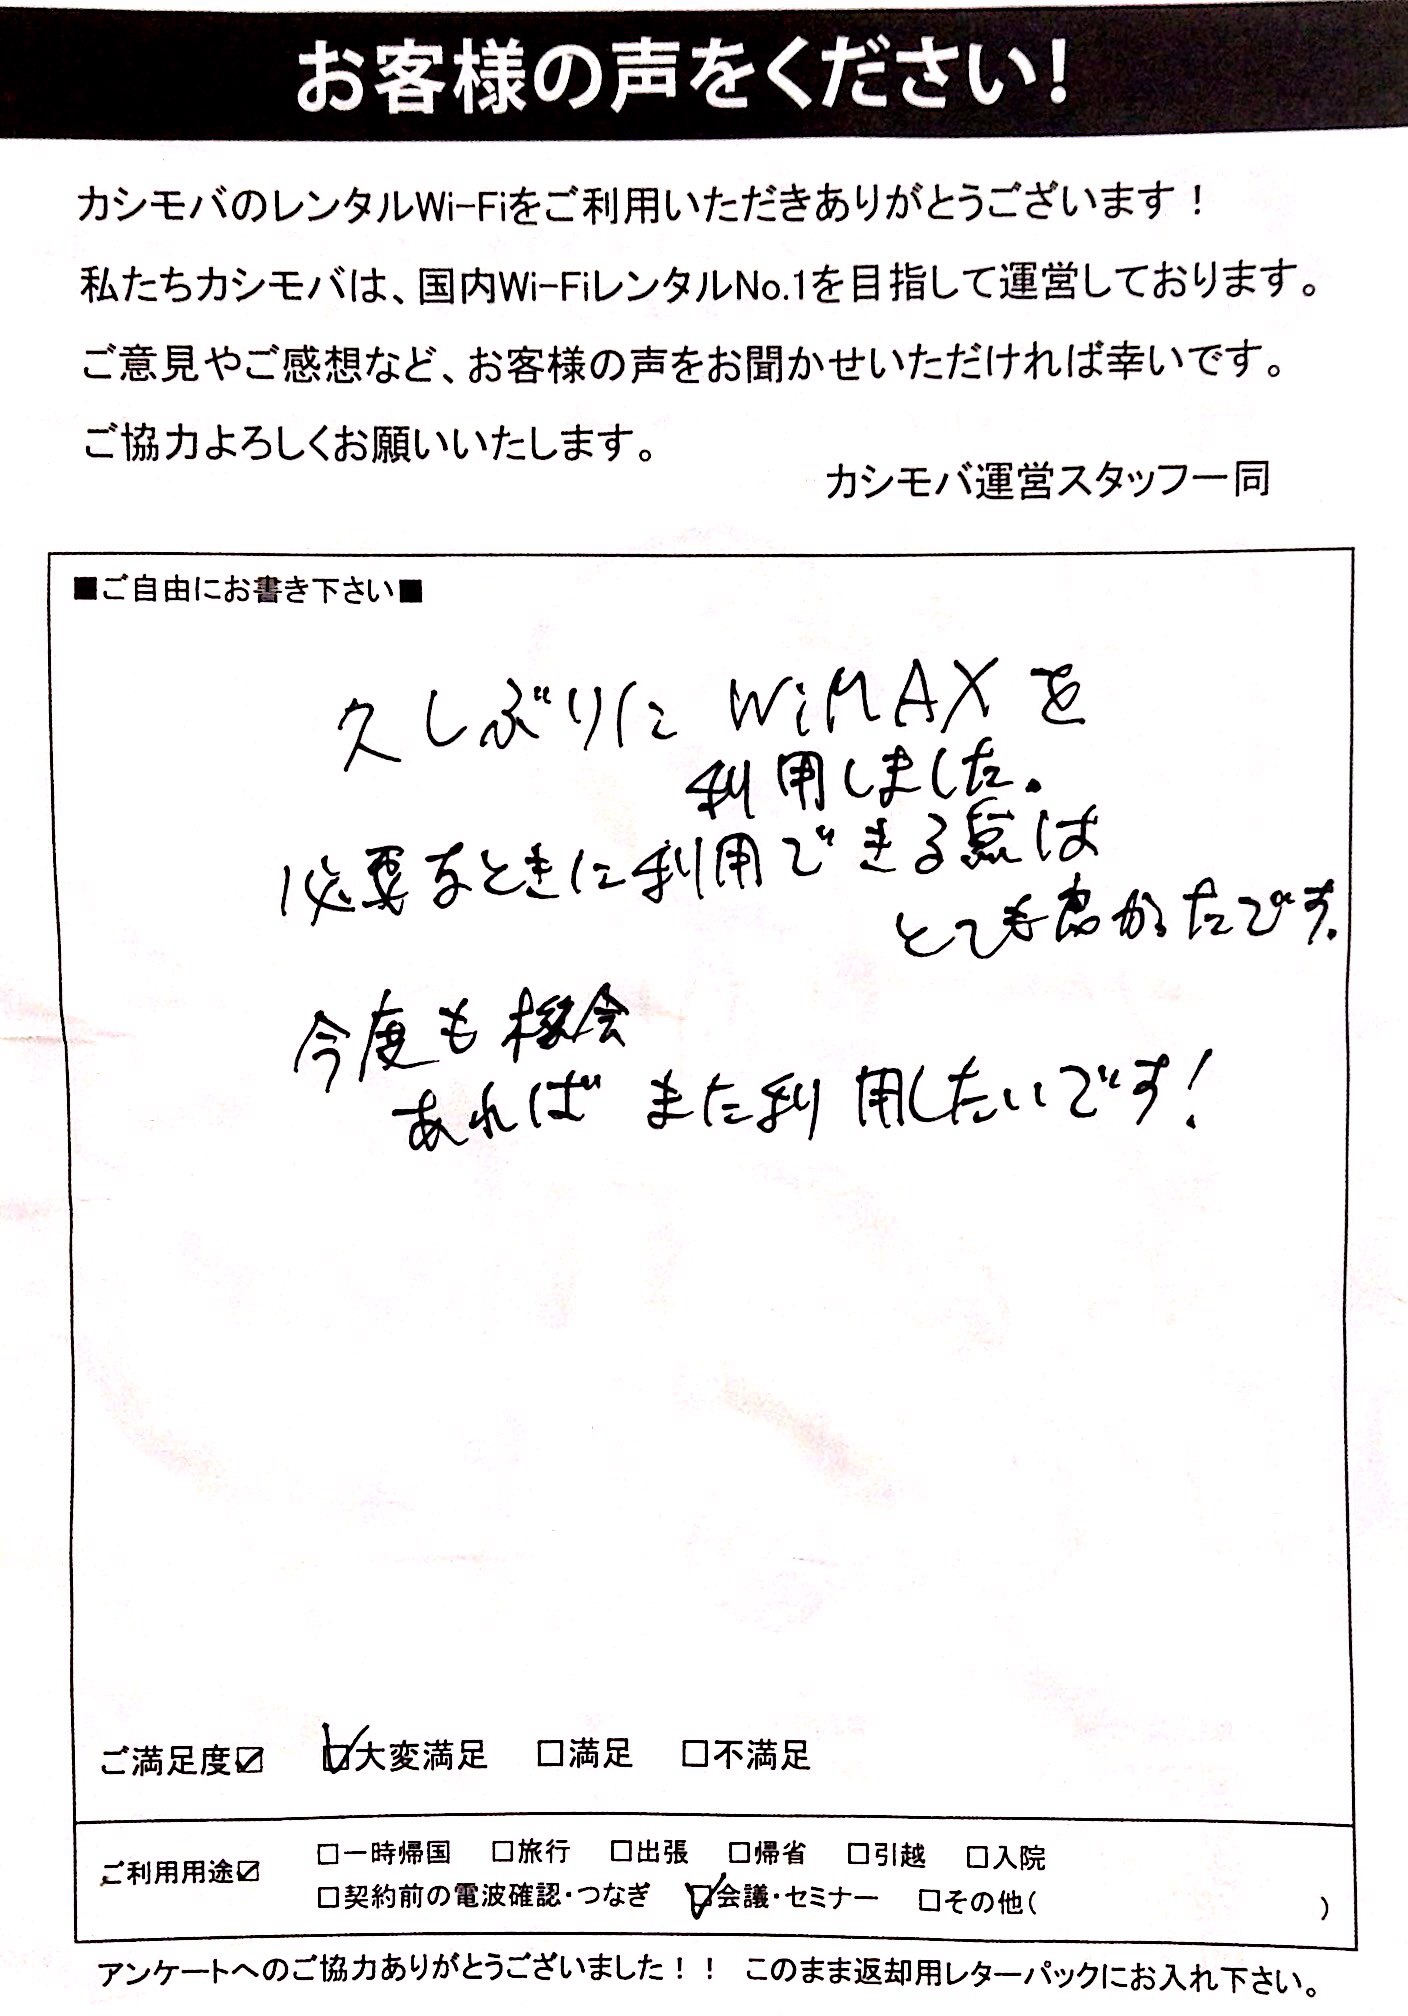 お客様の声をください!
カシモバのレンタルWi-Fiをご利用いただきありがとうございます！
私たちカシモバは、国内Wi-FiレンタルNo.1を目指して運営しております。
ご意見やご感想など、お客様の声をお聞かせいただければ幸いです。
ご協力よろしくお願いいたします。
カシモバ運営スタッフ一同
■ご自由にお書き下さい■
久しぶりに WiMAXを
利用しました。
必要なときに利用できる点は
とても良かったです。
今度も機会
あれば また利用したいです！
ご満足度☑ ☑大変満足 □満足 □不満足
ご利用用途☑ □一時帰国 □旅行 □出張 □帰省 □引越 □入院
□契約前の電波確認・つなぎ ☑会議・セミナー □その他( )
アンケートへのご協力ありがとうございました！！ このまま返却用レターパックにお入れ下さい。